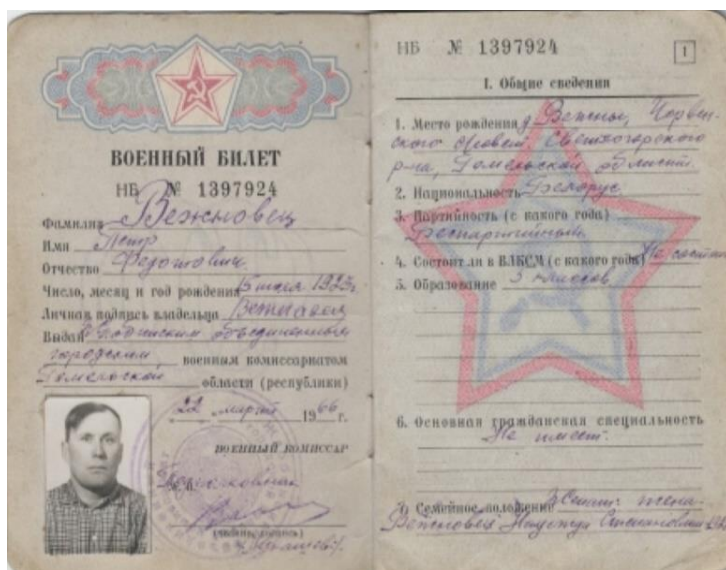 ВОЕННЫЙ БИЛЕТ
НБ № 1397924
Фамилия Вежновец
Имя Петр
Отчество Федотович
Число, месяц и год рождения 1923г.
Личная подпись владельца
Выдан объединенным
городским военным комиссариатом
Гомельской области (республики)
22 марта 1966 г.
ВОЕННЫЙ КОМИССАР
Подполковник
(подпись)
НБ № 1397924
1
I. Общие сведения
1. Место рождения д. Вежны, 
ского Светлогорского
р-на, Гомельской области.
2. Национальность Белорус
3. Партийность (с какого года)
Беспартийный
4. Состоит ли в ВЛКСМ (с какого года) Не состоит
5. Образование 3 классов
6. Основная гражданская специальность
Не имеет.
7. Семейное положение Женат: жена-
Вежновец Степановна